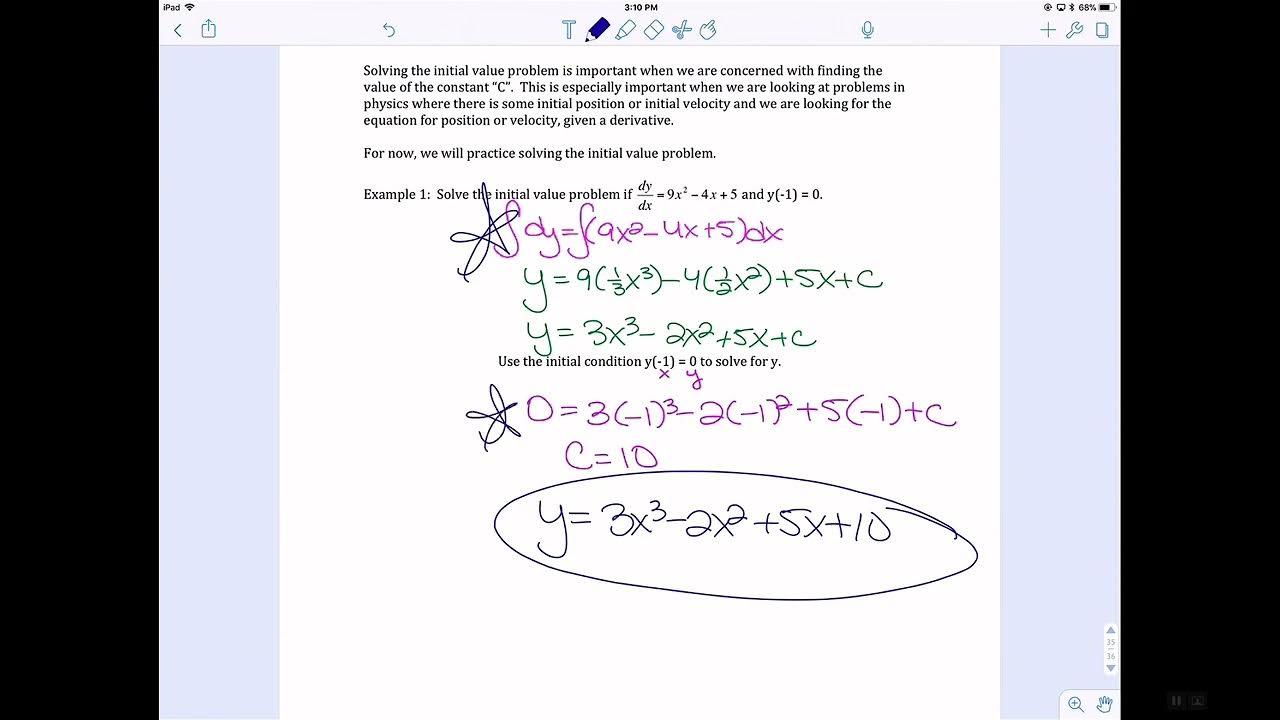 iPad 3:10 PM 68%
T
Solving the initial value problem is important when we are concerned with finding the
value of the constant “C”. This is especially important when we are looking at problems in
physics where there is some initial position or initial velocity and we are looking for the
equation for position or velocity, given a derivative.
For now, we will practice solving the initial value problem.
Example 1: Solve the initial value problem if dy/dx = 9x² − 4x + 5 and y(-1) = 0.
∫dy=∫(9x²-4x+5)dx
y=9(⅓x³)-4(½x²)+5x+C
y=3x³-2x²+5x+C
Use the initial condition y(-1) = 0 to solve for y.
x y
0=3(-1)³-2(-1)²+5(-1)+C
C=10
y=3x³-2x²+5x+10
35
36